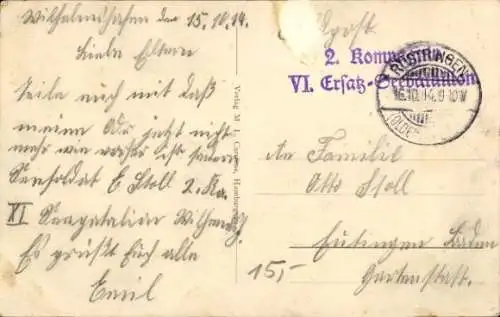 Wilhelmshafen den 15.10.14.
Liebe Eltern
Teile euch mit daß
meine Adr jetzt nicht
mehr wie vorher ist sondern
Seesoldat E Stoll 2. Ko.
VI Seebatalion Wilhelmsh.
Es grüßt Euch alle
Emil
Verlag M. L. Hamburg
Feldpost
2. Kompagnie
VI. Ersatz-Seebataillon
RÜSTRINGEN
16.10.14.9-10V
(OLDEN
An Familie
Otto Stoll
Eutingen Baden
Gartenstast.
15,-